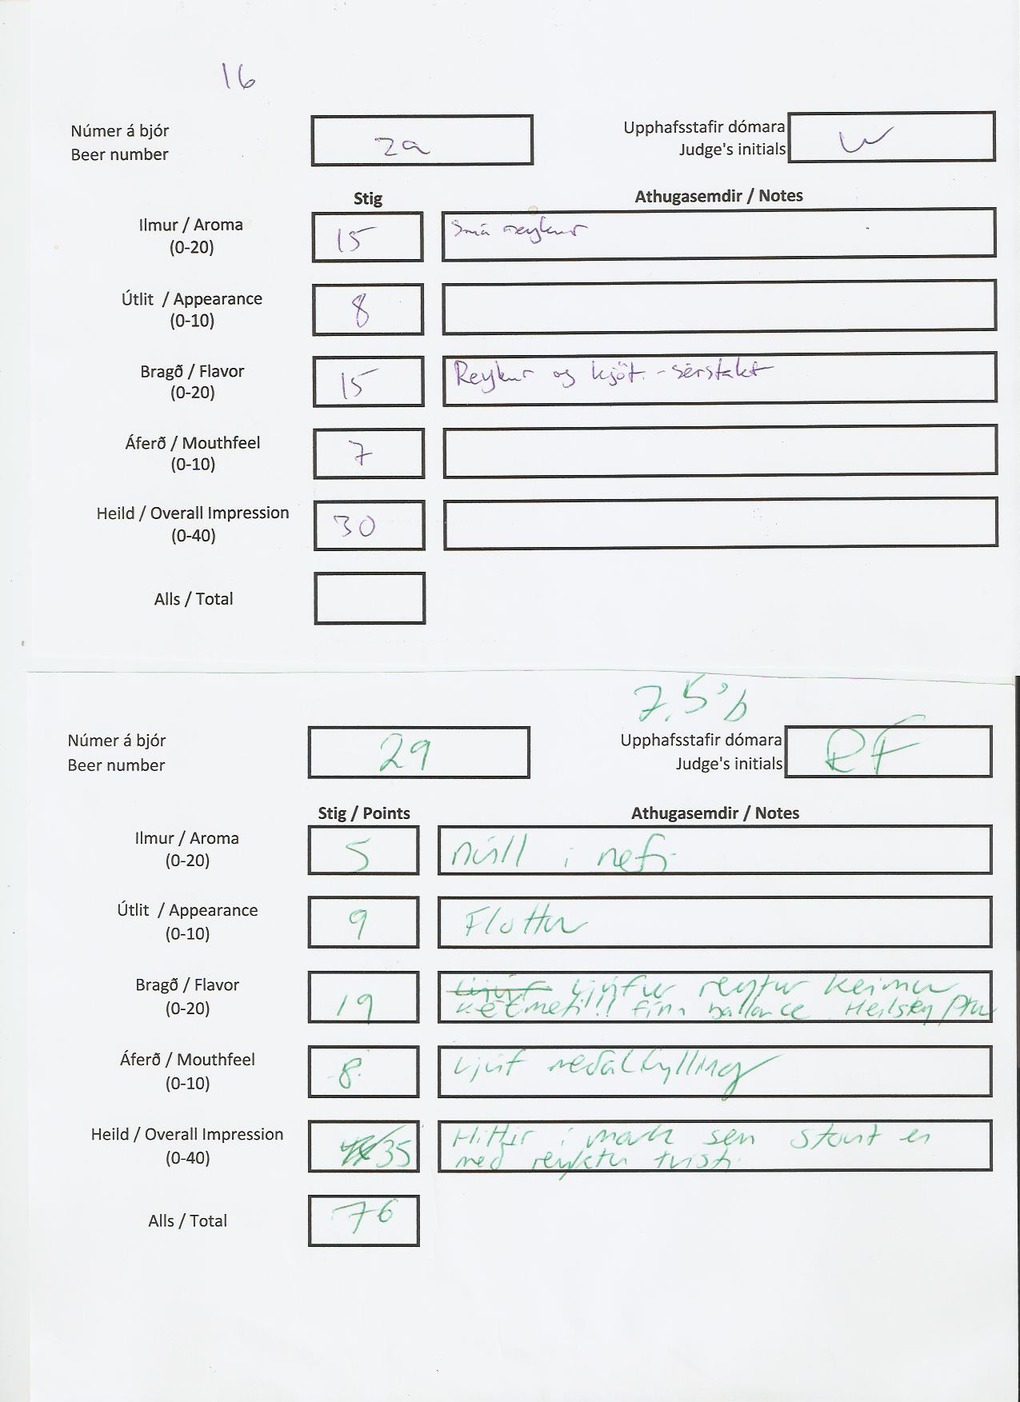 16
Númer á bjór
Beer number
29
Upphafsstafir dómara
Judge's initials
W
Stig
Athugasemdir / Notes
Ilmur / Aroma
(0-20)
15
Smá reykur
Útlit / Appearance
(0-10)
8
Bragð / Flavor
(0-20)
15
Reykur og kjöt. - sérstakt
Áferð / Mouthfeel
(0-10)
7
Heild / Overall Impression
(0-40)
30
Alls / Total
7.5%
Númer á bjór
Beer number
29
Upphafsstafir dómara
Judge's initials
RF
Stig / Points
Athugasemdir / Notes
Ilmur / Aroma
(0-20)
5
núll í nefi
Útlit / Appearance
(0-10)
9
Flottur
Bragð / Flavor
(0-20)
19
Ljúfur reyktur keimur
ketmeti!! fínn ballance
Áferð / Mouthfeel
(0-10)
8
Ljúf meðalfylling
Heild / Overall Impression
(0-40)
35
Hittir í mark sem stout er
með reyktu tvisti
Alls / Total
76